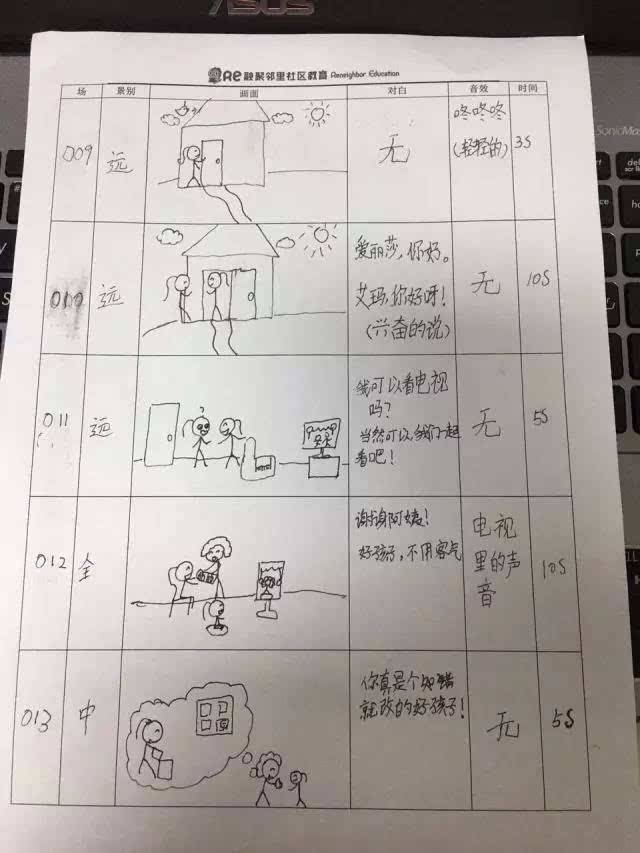 ASUS
Re融聚邻里社区教育 Reneighbor Education
场 景别 画面 对白 音效 时间
009 远 无 咚咚咚 3S
(轻轻的)
010 远 爱丽莎,你好。 无 10S
艾玛,你好呀!
(兴奋的说)
011 远 我可以看电视 无 5S
吗?
当然可以,我们一起
看吧!
012 全 谢谢阿姨! 电视 10S
好孩子,不用客气 里的声
音
013 中 你真是个知错 无 5S
就改的好孩子!
SonicMas